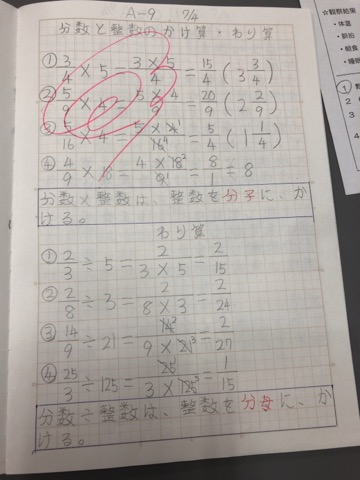 A-9 7/4
分数と整数のかけ算・わり算
① 3/4 × 5 = 3×5/4 = 15/4 (3 3/4)
② 5/9 × 4 = 5×4/9 = 20/9 (2 2/9)
③ 5/16 × 4 = 5×4¹/16⁴ = 5/4 (1 1/4)
④ 4/9 × = 4×18²/9¹ = 8/1 = 8
分数×整数は、整数を分子に、か
ける。
わり算
① 2/3 ÷ 5 = 2/3×5 = 2/15
② 2/8 ÷ 3 = 2/8×3 = 2/24
③ 14/9 ÷ 21 = 14²/9×21³ = 2/27
④ 25/3 ÷ 125 = 25¹/3×125⁵ = 1/15
分数÷整数は、整数を分母に、か
ける。
☆観察結果
・体温
・朝食
・睡眠
①